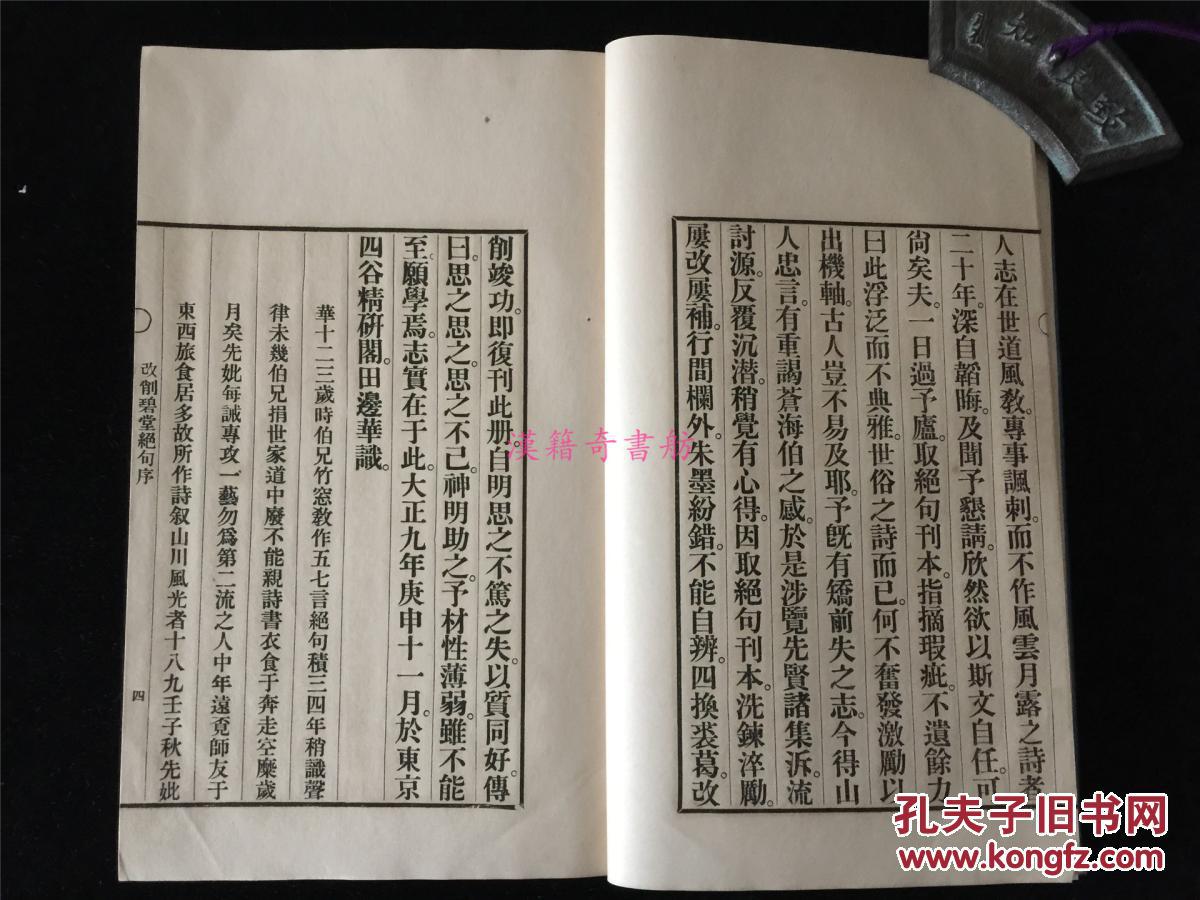 人志在世道風教。專事諷刺。而不作風雲月露之詩者
二十年。深自韜晦。及聞予懇請。欣然欲以斯文自任。可
尙矣夫。一日過予廬。取絕句刊本。指摘瑕疵。不遺餘力
曰此浮泛而不典雅。世俗之詩而已。何不奮發激勵。以
出機軸。古人豈不易及耶。予既有矯前失之志。今得山
人忠言。有重謁蒼海伯之感。於是涉覽先賢諸集。泝流
討源。反覆沉潛。稍覺有心得。因取絕句刊本。洗鍊淬勵。
屢改屢補。行間欄外。朱墨紛錯。不能自辨。四換裘葛。改
削竣功。即復刊此册。自明思之不篤之失。以質同好。傳
曰。思之思之。思之不已。神明助之。予材性薄弱。雖不能
至。願學焉。志實在于此。大正九年庚申十一月。於東京
四谷精硏閣。田邊華識。
華十二三歲時伯兄竹窓敎作五七言絕句積三四年稍識聲
律未幾伯兄捐世家道中廢不能親詩書衣食于奔走空糜歲
月矣先妣每誡專攻一藝勿爲第二流之人中年遠覓師友于
東西旅食居多故所作詩叙山川風光者十八九壬子秋先妣
改削碧堂絕句序
四
漢籍奇書舫
孔夫子旧书网
www.kongfz.com